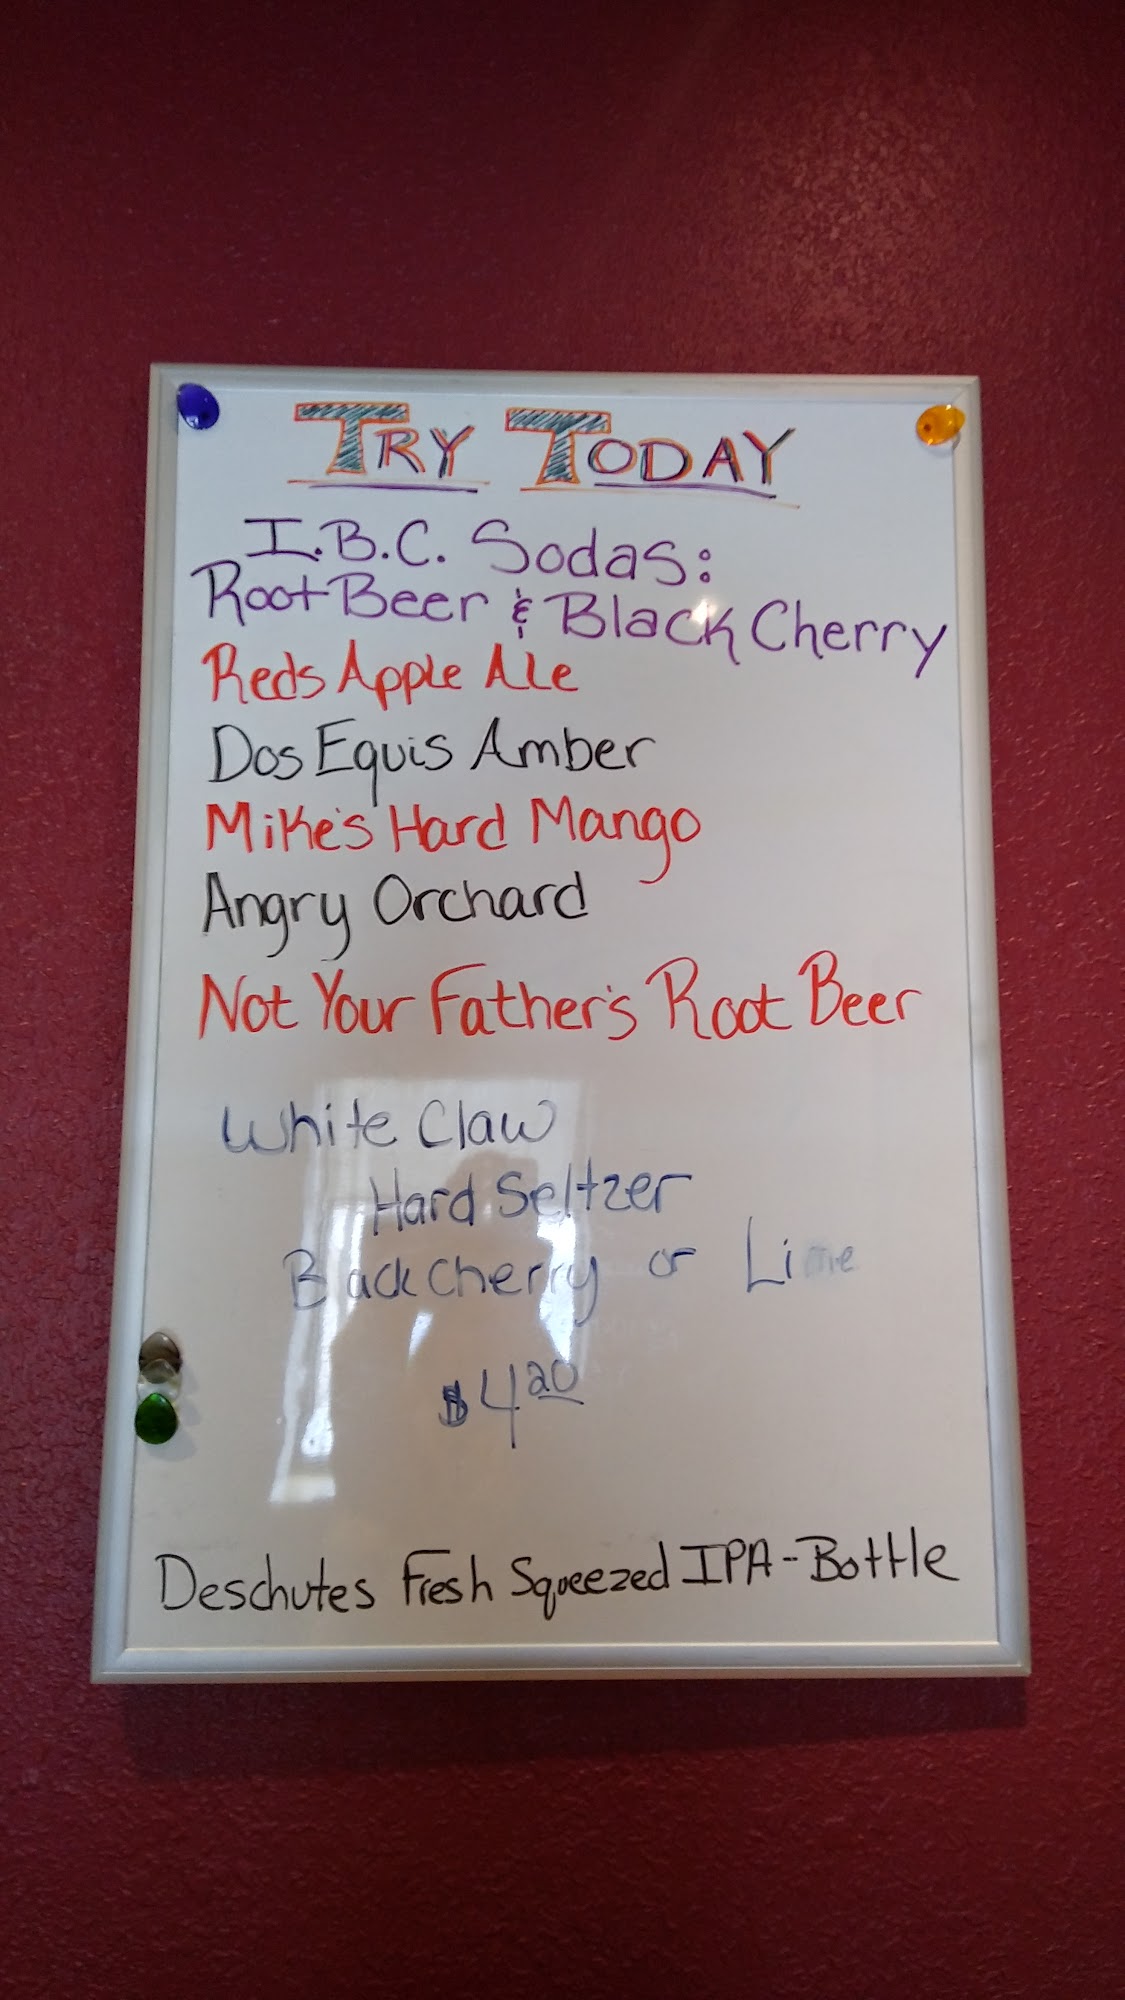 TRY TODAY
I.B.C. Sodas:
Root Beer & Black Cherry
Reds Apple Ale
Dos Equis Amber
Mike's Hard Mango
Angry Orchard
Not Your Father's Root Beer
White Claw
Hard Seltzer
Black Cherry or Lime
$4.20
Deschutes Fresh Squeezed IPA - Bottle